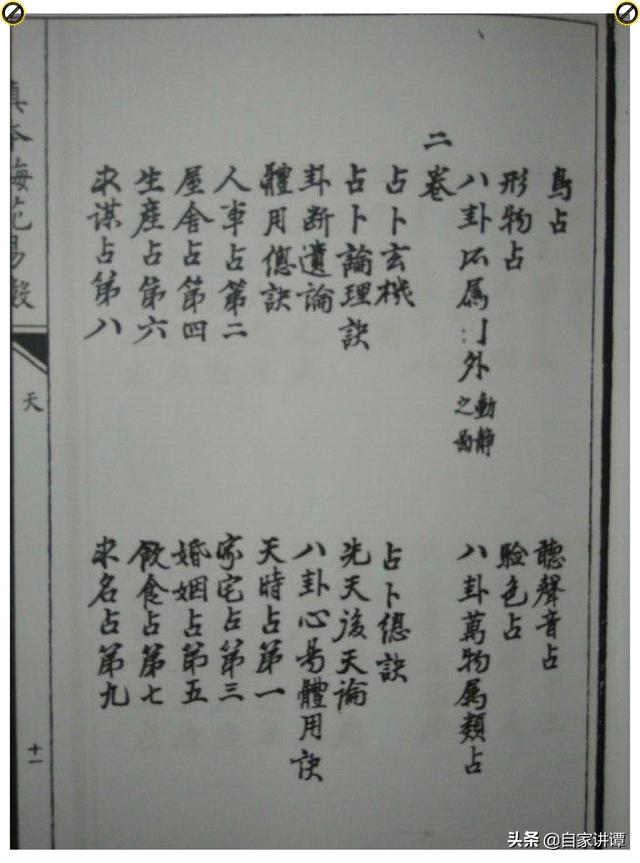 鳥占
聽聲音占
形物占
色占
八卦所属外動靜之圖
八卦萬物属類占
二卷
占卜玄機
占卜總訣
占卜論理訣
先天後天論
卦斷遺論
八卦心易體用訣
體用總訣
天時占第一
人事占第二
家宅占第三
屋舍占第四
婚姻占第五
生產占第六
飲食占第七
求謀占第八
求名占第九
真本梅花易數
天
十一
头条 @自家讲谭